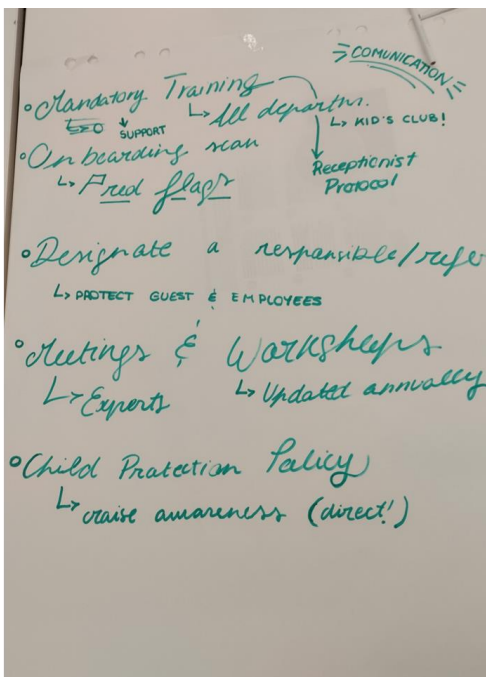 COMUNICATION
◦ Mandatory Training
↳ All departm.
↳ KID'S CLUB!
↓ SUPPORT
Receptionist
Protocol
◦ Onboarding scan
↳ red flags
◦ Designate a responsible/refe
↳ PROTECT GUEST & EMPLOYEES
◦ Meetings & Workshops
↳ Experts
↳ Updated annually
◦ Child Protection Policy
↳ raise awareness (direct!)